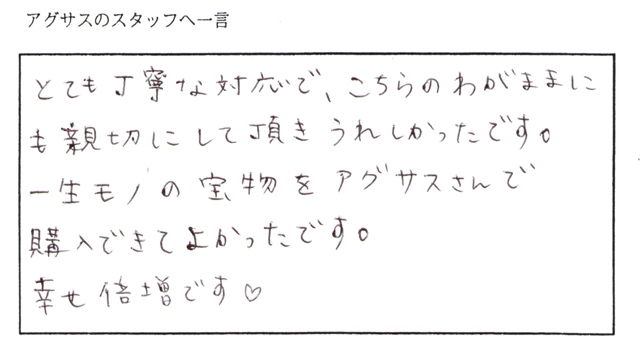 アグサスのスタッフへ一言
とても丁寧な対応で、こちらのわがままに
も親切にして頂きうれしかったです。
一生モノの宝物をアグサスさんで
購入できてよかったです。
幸せ倍増です♡